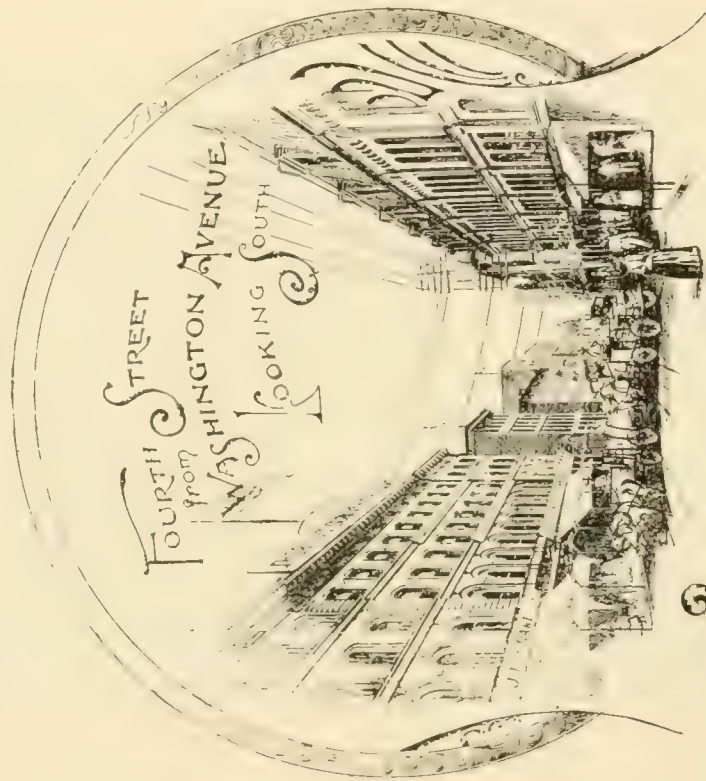 FOURTH STREET
from
WASHINGTON AVENUE
LOOKING SOUTH